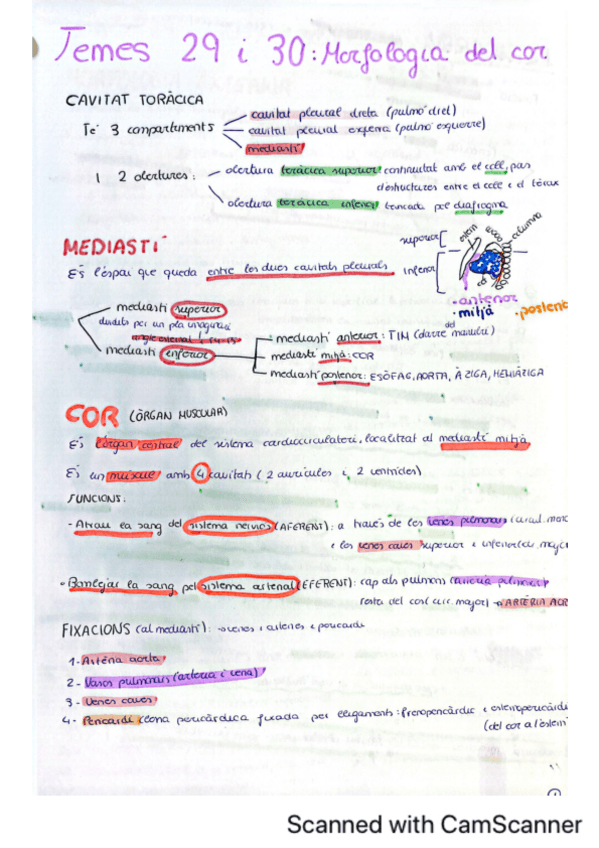 Temes 29 i 30: Morfologia del cor
CAVITAT TORÀCICA
Té 3 compartiments
cavitat pleural dreta (pulmó dret)
cavitat pleural esquerra (pulmó esquerre)
mediastí
i 2 obertures:
obertura toràcica superior: continuïtat amb el coll, pas
d'estructures entre el coll i el tòrax
obertura toràcica inferior: tancada pel diafragma
MEDIASTÍ
És l'espai que queda entre les dues cavitats pleurals
superior
inferior
cor
columna
·anterior
·mitjà
·posterio
mediastí superior
dividits per un pla imaginari
angle esternal
mediastí inferior
mediastí anterior: TIM (darrere del manubri)
mediastí mitjà: COR
mediastí posterior: ESÒFAG, AORTA, ÀZIGA, HEMIÀZIGA
COR (ÒRGAN MUSCULAR)
És l'òrgan central del sistema cardiocirculatori, localitzat al mediastí mitjà
És un múscul amb 4 cavitats (2 aurícules i 2 ventricles)
FUNCIONS:
- Atrau la sang del sistema nerviós (AFERENT): a través de les venes pulmonars
i les venes caves superior e inferior
· Bombejar la sang pel sistema arterial (EFERENT): cap als pulmons artèria pulmonar
resta del cos (circ. major) → ARTÈRIA AOR
FIXACIONS (al mediastí): venes i artèries e pericardi
1- Artèria aorta
2- Vasos pulmonars (artèria i vena)
3- Venes caves
4- Pericardi pericàrdica fixada per lligaments: frenopericàrdic i esternopericàrdi
(del cor a l'estern
Scanned with CamScanner